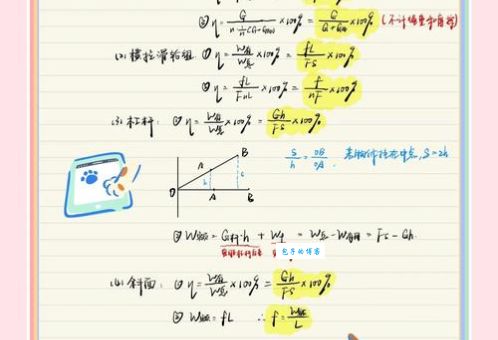 ② η = G / n·1/n(G+G动) ×100% = G / G+G动 ×100% (不计绳重和摩擦)
(2) 横拉滑轮组 ① η = W有/W总 ×100% = fL/FS ×100%
② η = fL/FnL ×100% = f/nF ×100%
(3) 杠杆: ① η = W有/W总 ×100% = Gh/FS ×100%
B
A
h
S
O
A
B
S/h = OB/OA . 若物体挂在中点, S=2h
② W额 = G杆·h + Wf = W总 - W有用 = FS - Gh
包子的博客
(4) 斜面: ① η = W有/W总 ×100% = Gh/FS ×100%
② W额 = fL ∴ f = W额/L